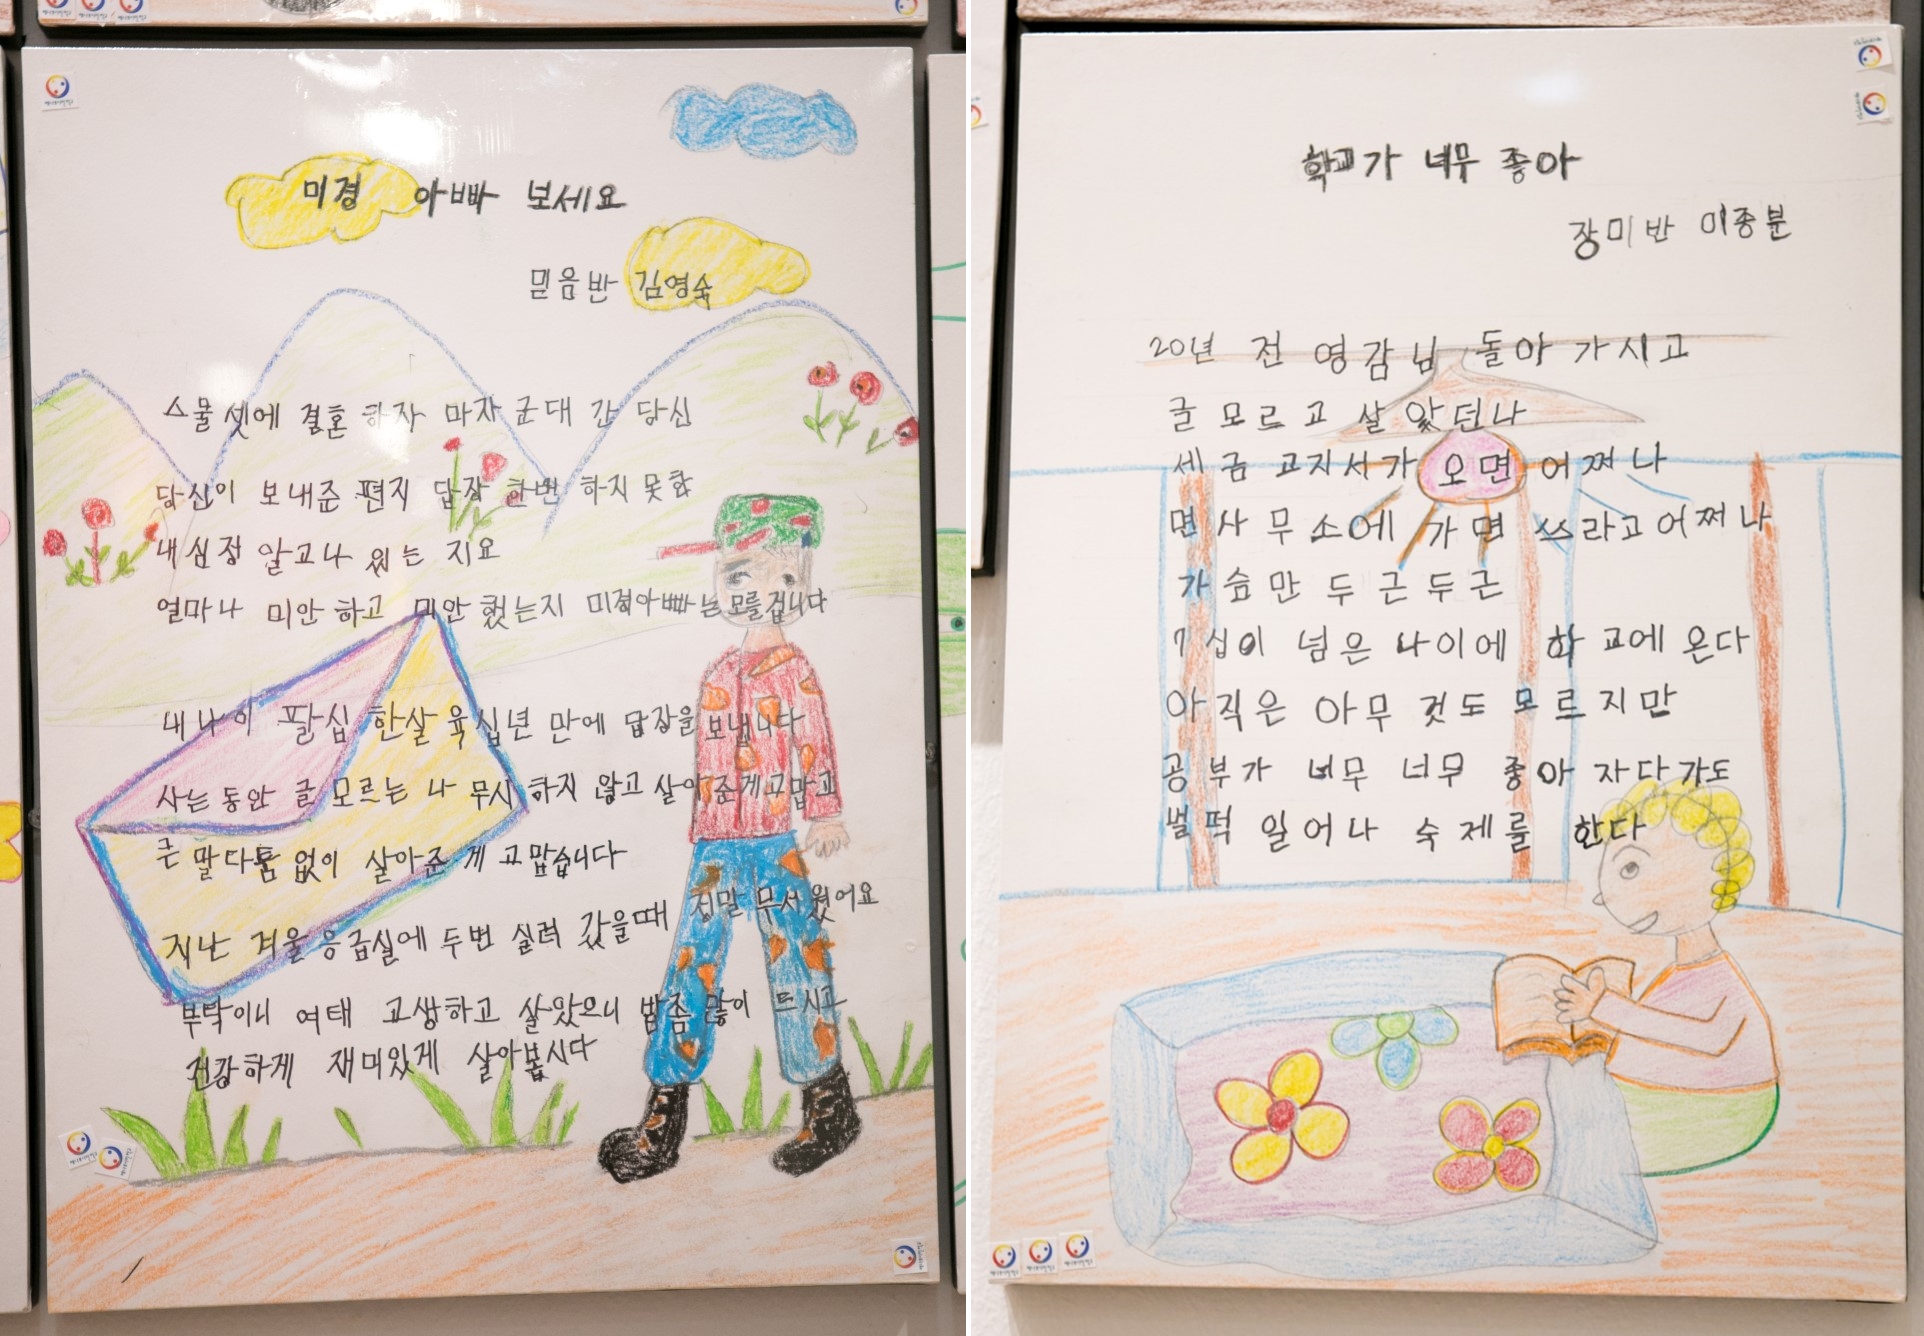 미경 아빠 보세요
믿음반 김영숙
스물셋에 결혼 하자 마자 군대 간 당신
당신이 보내준 편지 답장 한번 하지 못한
내심정 알고나 있는 지요
얼마나 미안 하고 미안 했는지 미경아빠는 모를겁니다
내 나이 팔십 한살 육 십년 만에 답장을 보냅니다
사는동안 글 모르는 나 무시 하지 않고 살아 준게고맙고
큰 말다툼 없이 살아준 게 고맙습니다
지난 겨울 응급실에 두번 실려 갔을때 정말 무서웠어요
부탁이니 여태 고생하고 살았으니 밥좀 많이 드시고
건강하게 재미있게 살아봅시다
학교가 너무 좋아
장미반 이종분
20년 전 영감님 돌아 가시고
글 모르고 살 았던나
세금 고지서가 오면 어쩌나
면사무소에 가면 쓰라고어쩌나
가슴만 두근두근
7십이 넘은 나이에 학교에 온다
아직은 아무것도 모르지만
공부가 너무 너무 좋아 자다가도
벌떡 일어나 숙제를 한다